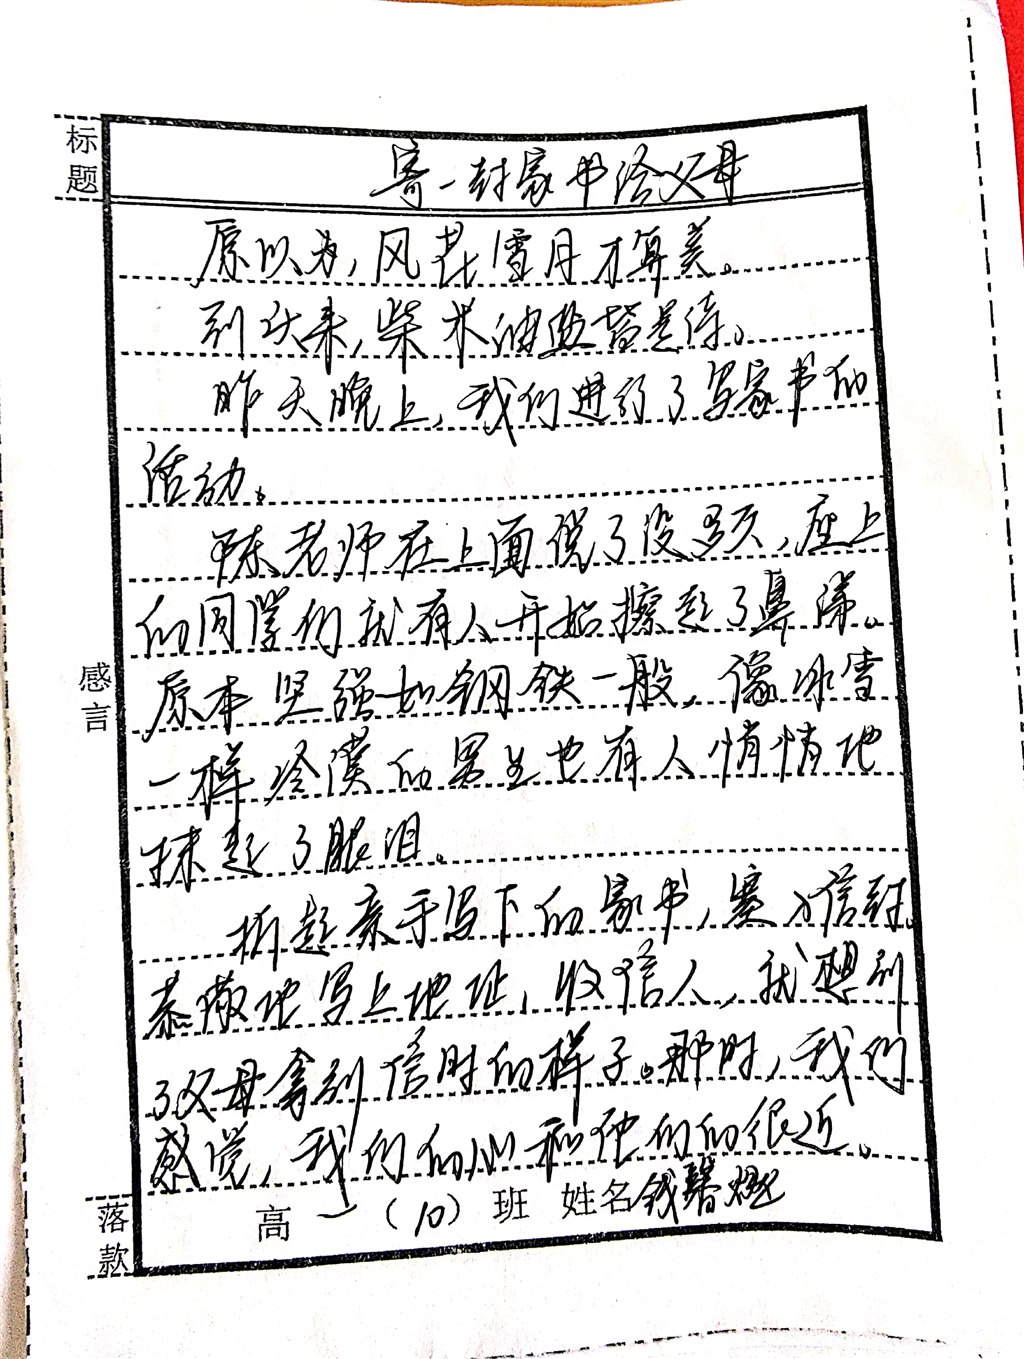 标题
寄一封家书给父母
原以为,风花雪月才算美。
到头来,柴米油盐皆是诗。
昨天晚上,我们进行了写家书的
活动。
感言
陈老师在上面说了没多久,座上
的同学们就有人开始擦起了鼻涕。
原本坚强如钢铁一般,像冰雪
一样冷漠的男生也有人悄悄地
抹起了眼泪。
折起亲手写下的家书,塞入信封。
恭敬地写上地址,收信人,就想到
了父母拿到信时的样子。那时,我们
感觉,我们的心和他们的很近。
落款
高一(10)班 姓名钱